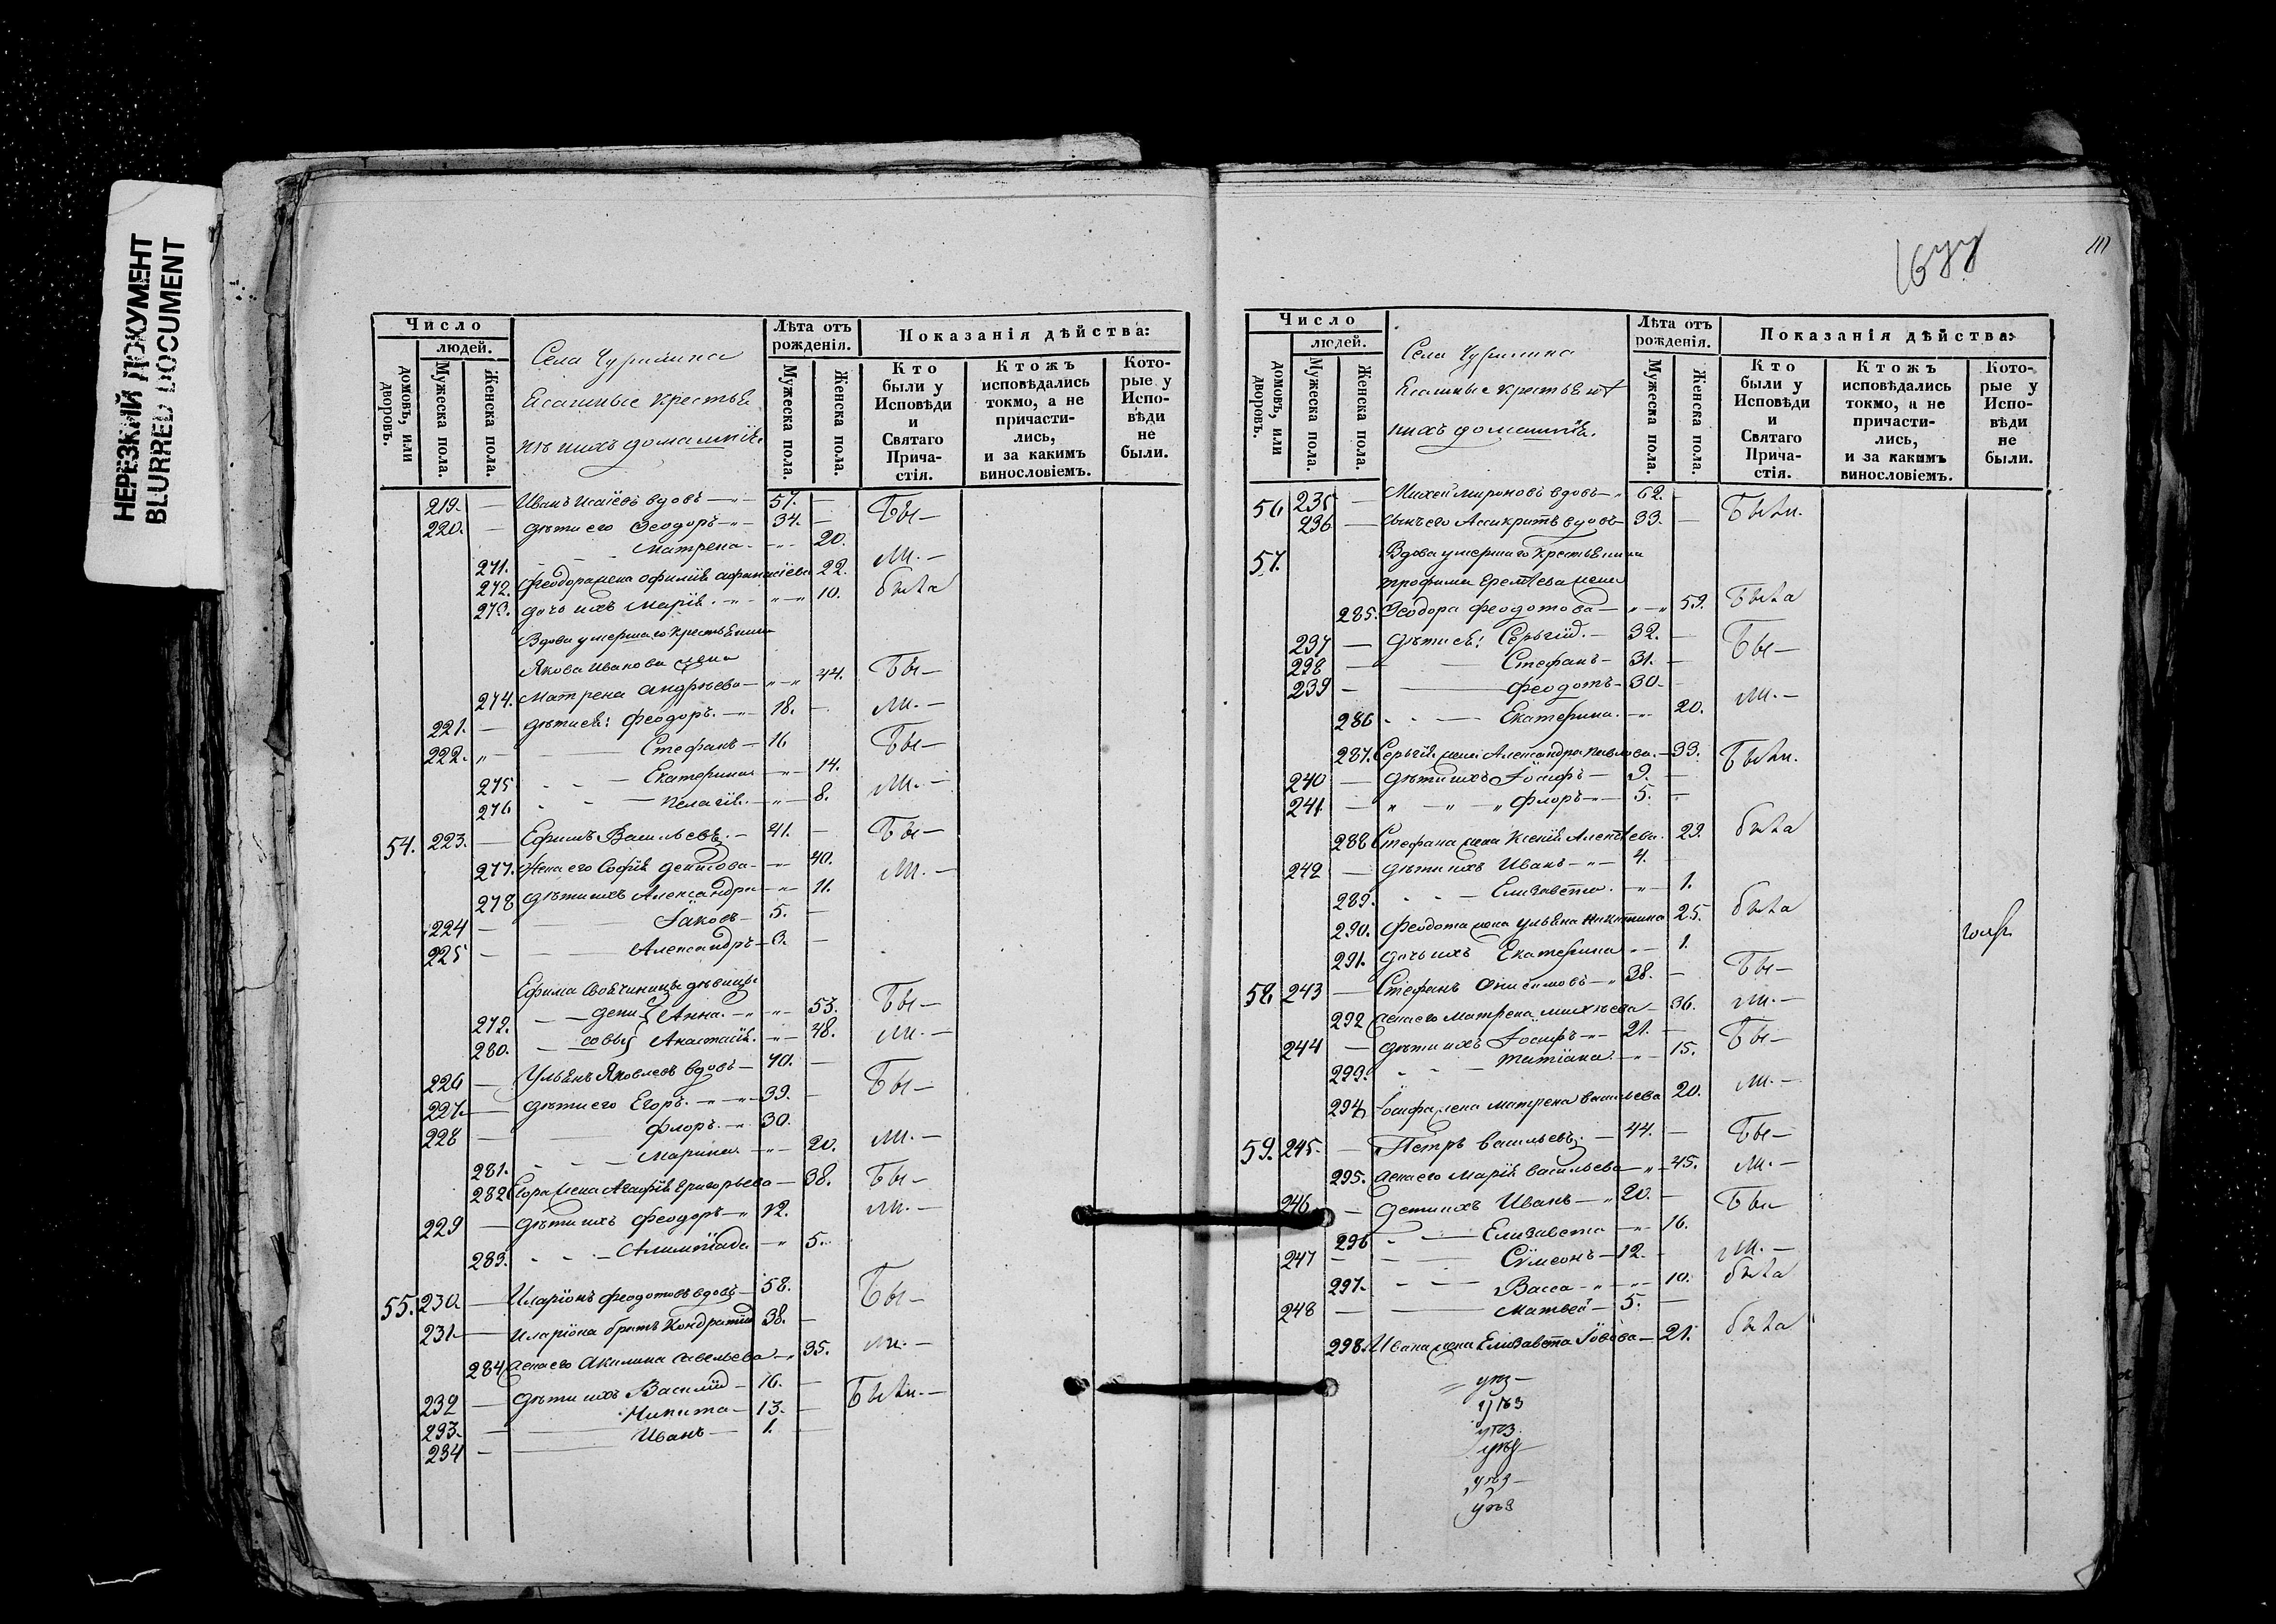 НЕРЕЗКИЙ ДОКУМЕНТ
BLURRED DOCUMENT
Число
людей.
домовъ, или дворовъ.
Мужеска пола.
Женска пола.
Села Чурилина
Ясашные крестья
не ихъ домашнія.
Лѣта отъ рожденія.
Мужеска пола.
Женска пола.
Показанія дѣйства:
Кто были у Исповѣди и Святаго Прича-стія.
Ктожъ исповѣдались токмо, а не причасти-лись, и за какимъ винословіемъ.
Кото-рые у Испо-вѣди не были.
219. — Иванъ Исаіевъ вдовъ — 57. — Бы—
220. — дѣти его Ѳеодоръ — 34. —
271. Матрена — 20. ли.—
272. Феодора жена Офимія Афанасіева 22.
273. дочь ихъ Марія. — 10. была
Вдова умершаго крестьянина
Якова Иванова жена
274. Матрена Андреева — 44. Бы—
221. — дѣти ея: Феодоръ. — 18. — ли.—
222. — Стефанъ — 16 Бы—
275 — Екатерина — 14.
276 — Пелагія. — 8. ли.—
54. 223. — Ефимъ Васильевъ. — 41. — Бы—
277. Жена его Софія Денисова — 40. ли.—
278 дѣти ихъ Александра — 11.
224 — Іаковъ — 5. —
225 — Александръ — 3. —
Ефима своячиницы дѣвицы
279. — Дени { Анна. — 53. Бы—
280. — совы { Анастасія. — 48. ли.—
226 — Ульянъ Яковлевъ вдовъ — 70. —
227. — дѣти его Егоръ. — 39. — Бы—
228 — Флоръ. — 30.
281. — Марина — 20. ли.—
282 Егора жена Агафія Григорьева — 38. Бы—
229 — дѣти ихъ Феодоръ — 12. ли.—
283. — Алимпіада — 5.
55. 230. — Иларіонъ Феодотовъ вдовъ — 58. Бы—
231. — Иларіона братъ Кондратій 38. —
284 жена его Акилина Савельева — 35. ли.—
232 — дѣти ихъ Василій — 16. — Были.—
233. — Никита — 13. —
234 — Иванъ — 1. —
1677
111
Число
людей.
домовъ, или дворовъ.
Мужеска пола.
Женска пола.
Села Чурилина
Ясашные крестьяне
ихъ домашнія.
Лѣта отъ рожденія.
Мужеска пола.
Женска пола.
Показанія дѣйства:
Кто были у Исповѣди и Святаго Прича-стія.
Ктожъ исповѣдались токмо, а не причасти-лись, и за какимъ винословіемъ.
Кото-рые у Испо-вѣди не были.
56 235 — Михей Мироновъ вдовъ — 62. — Были.
236 — сынъ его Асикритъ вдовъ — 33. —
57. Вдова умершаго крестьянина
Трофима Еремѣева жена
285. Ѳеодора Феодотова — 59. Была
237 — дѣти ея: Сергій. — 32. — Бы—
238 — Стефанъ — 31. —
239 — Феодотъ — 30. —
286 — Екатерина. — 20. ли.—
287. Сергія жена Александра Павлова. — 33. Были.
240 — дѣти ихъ Іосифъ — 9. —
241 — Флоръ — 5. —
288 Стефана жена Ксенія Алексѣева. 29. была
242 — дѣти ихъ Иванъ — 4. —
289. — Елизавета. — 1.
290. Феодота жена Ульяна Никитина 25. была
291. дочь ихъ Екатерина — 1.
58 243 — Стефанъ Онисимовъ — 38. — Бы—
292 жена его Матрена Михѣева — 36. ли.—
244 — дѣти ихъ Іосифъ — 21. — Бы—
293. — Татіана — 15.
294 Іосифа жена Матрена Васильева 20. ли.—
59. 245. — Петръ Васильевъ. — 44. — Бы—
295. жена его Марія Васильева — 45. ли.—
246 — дети ихъ Иванъ — 20. — Бы—
296 — Елизавета — 16.
247 — Сѵмеонъ — 12. ли.—
297. — Васса — 10. была
248 — Матвей — 5. —
298. Ивана жена Елизавета Іовова — 21. была